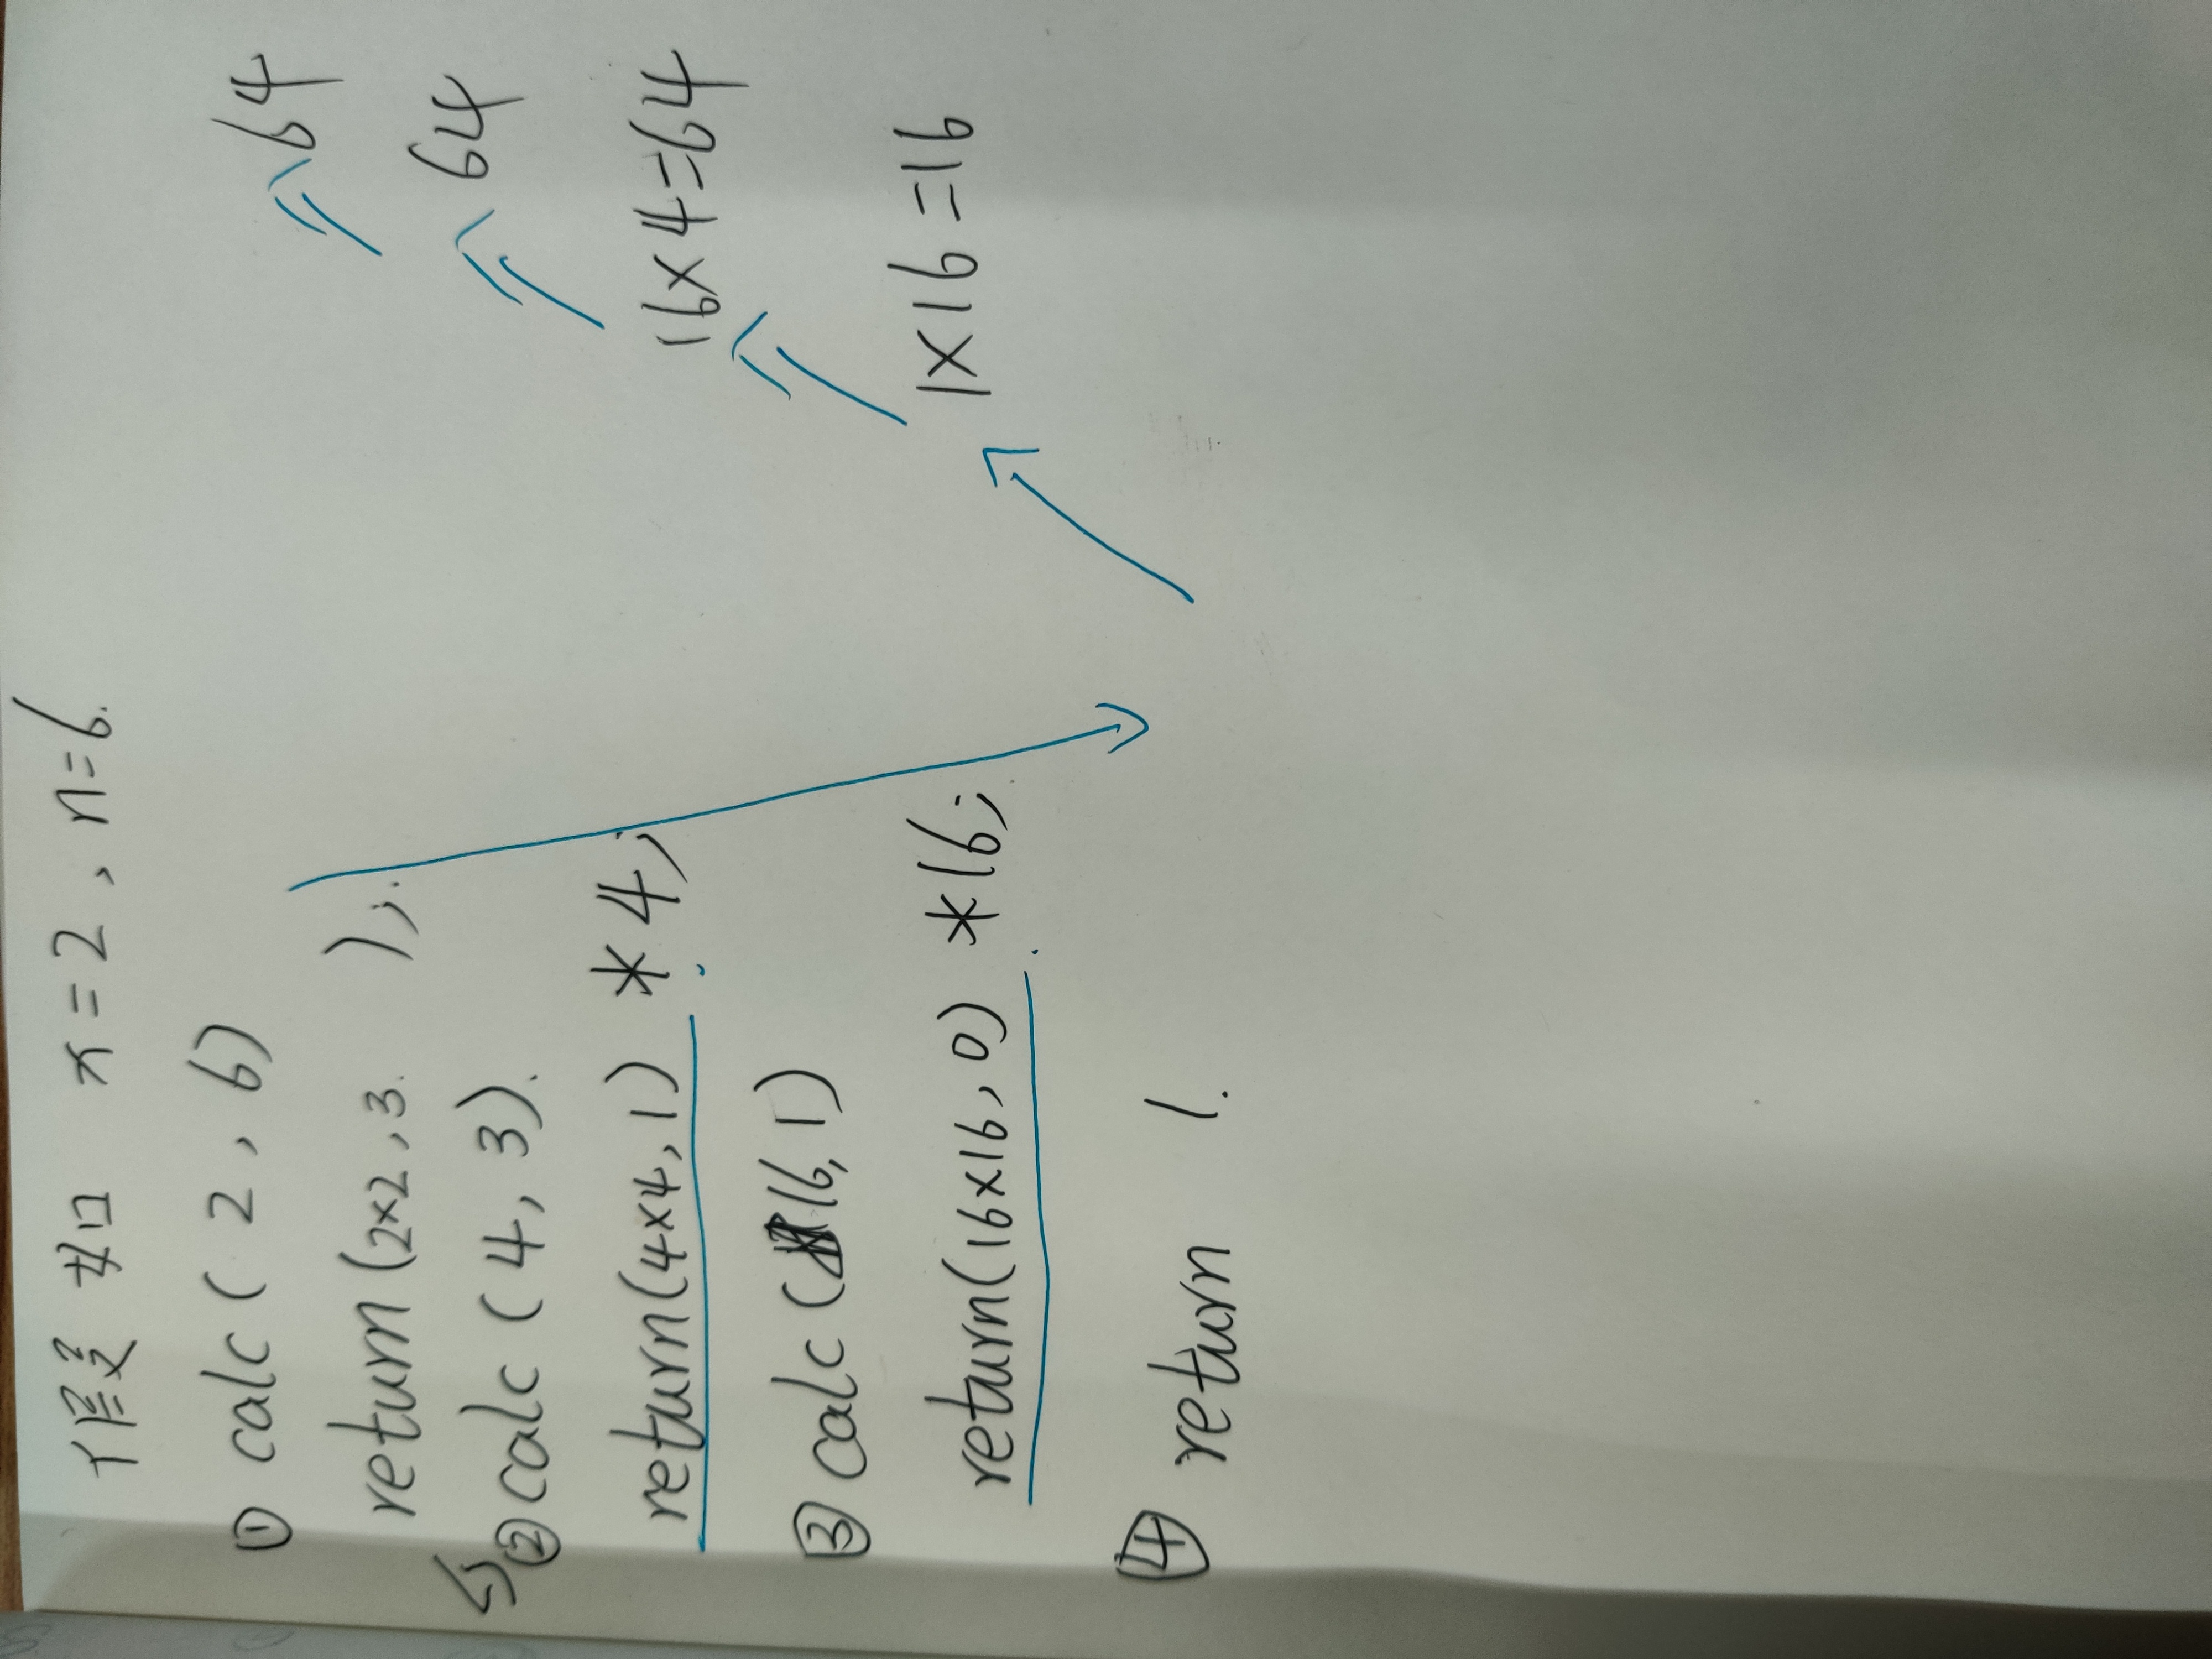 假如 x=2, n=6.
① calc(2,6) 64
return(2×2,3. );. 64
② calc(4,3).
return(4×4,1) *4; 16×4=64
③ calc(16,1)
return(16×16,0) *16; 1×16=16
④ return 1.